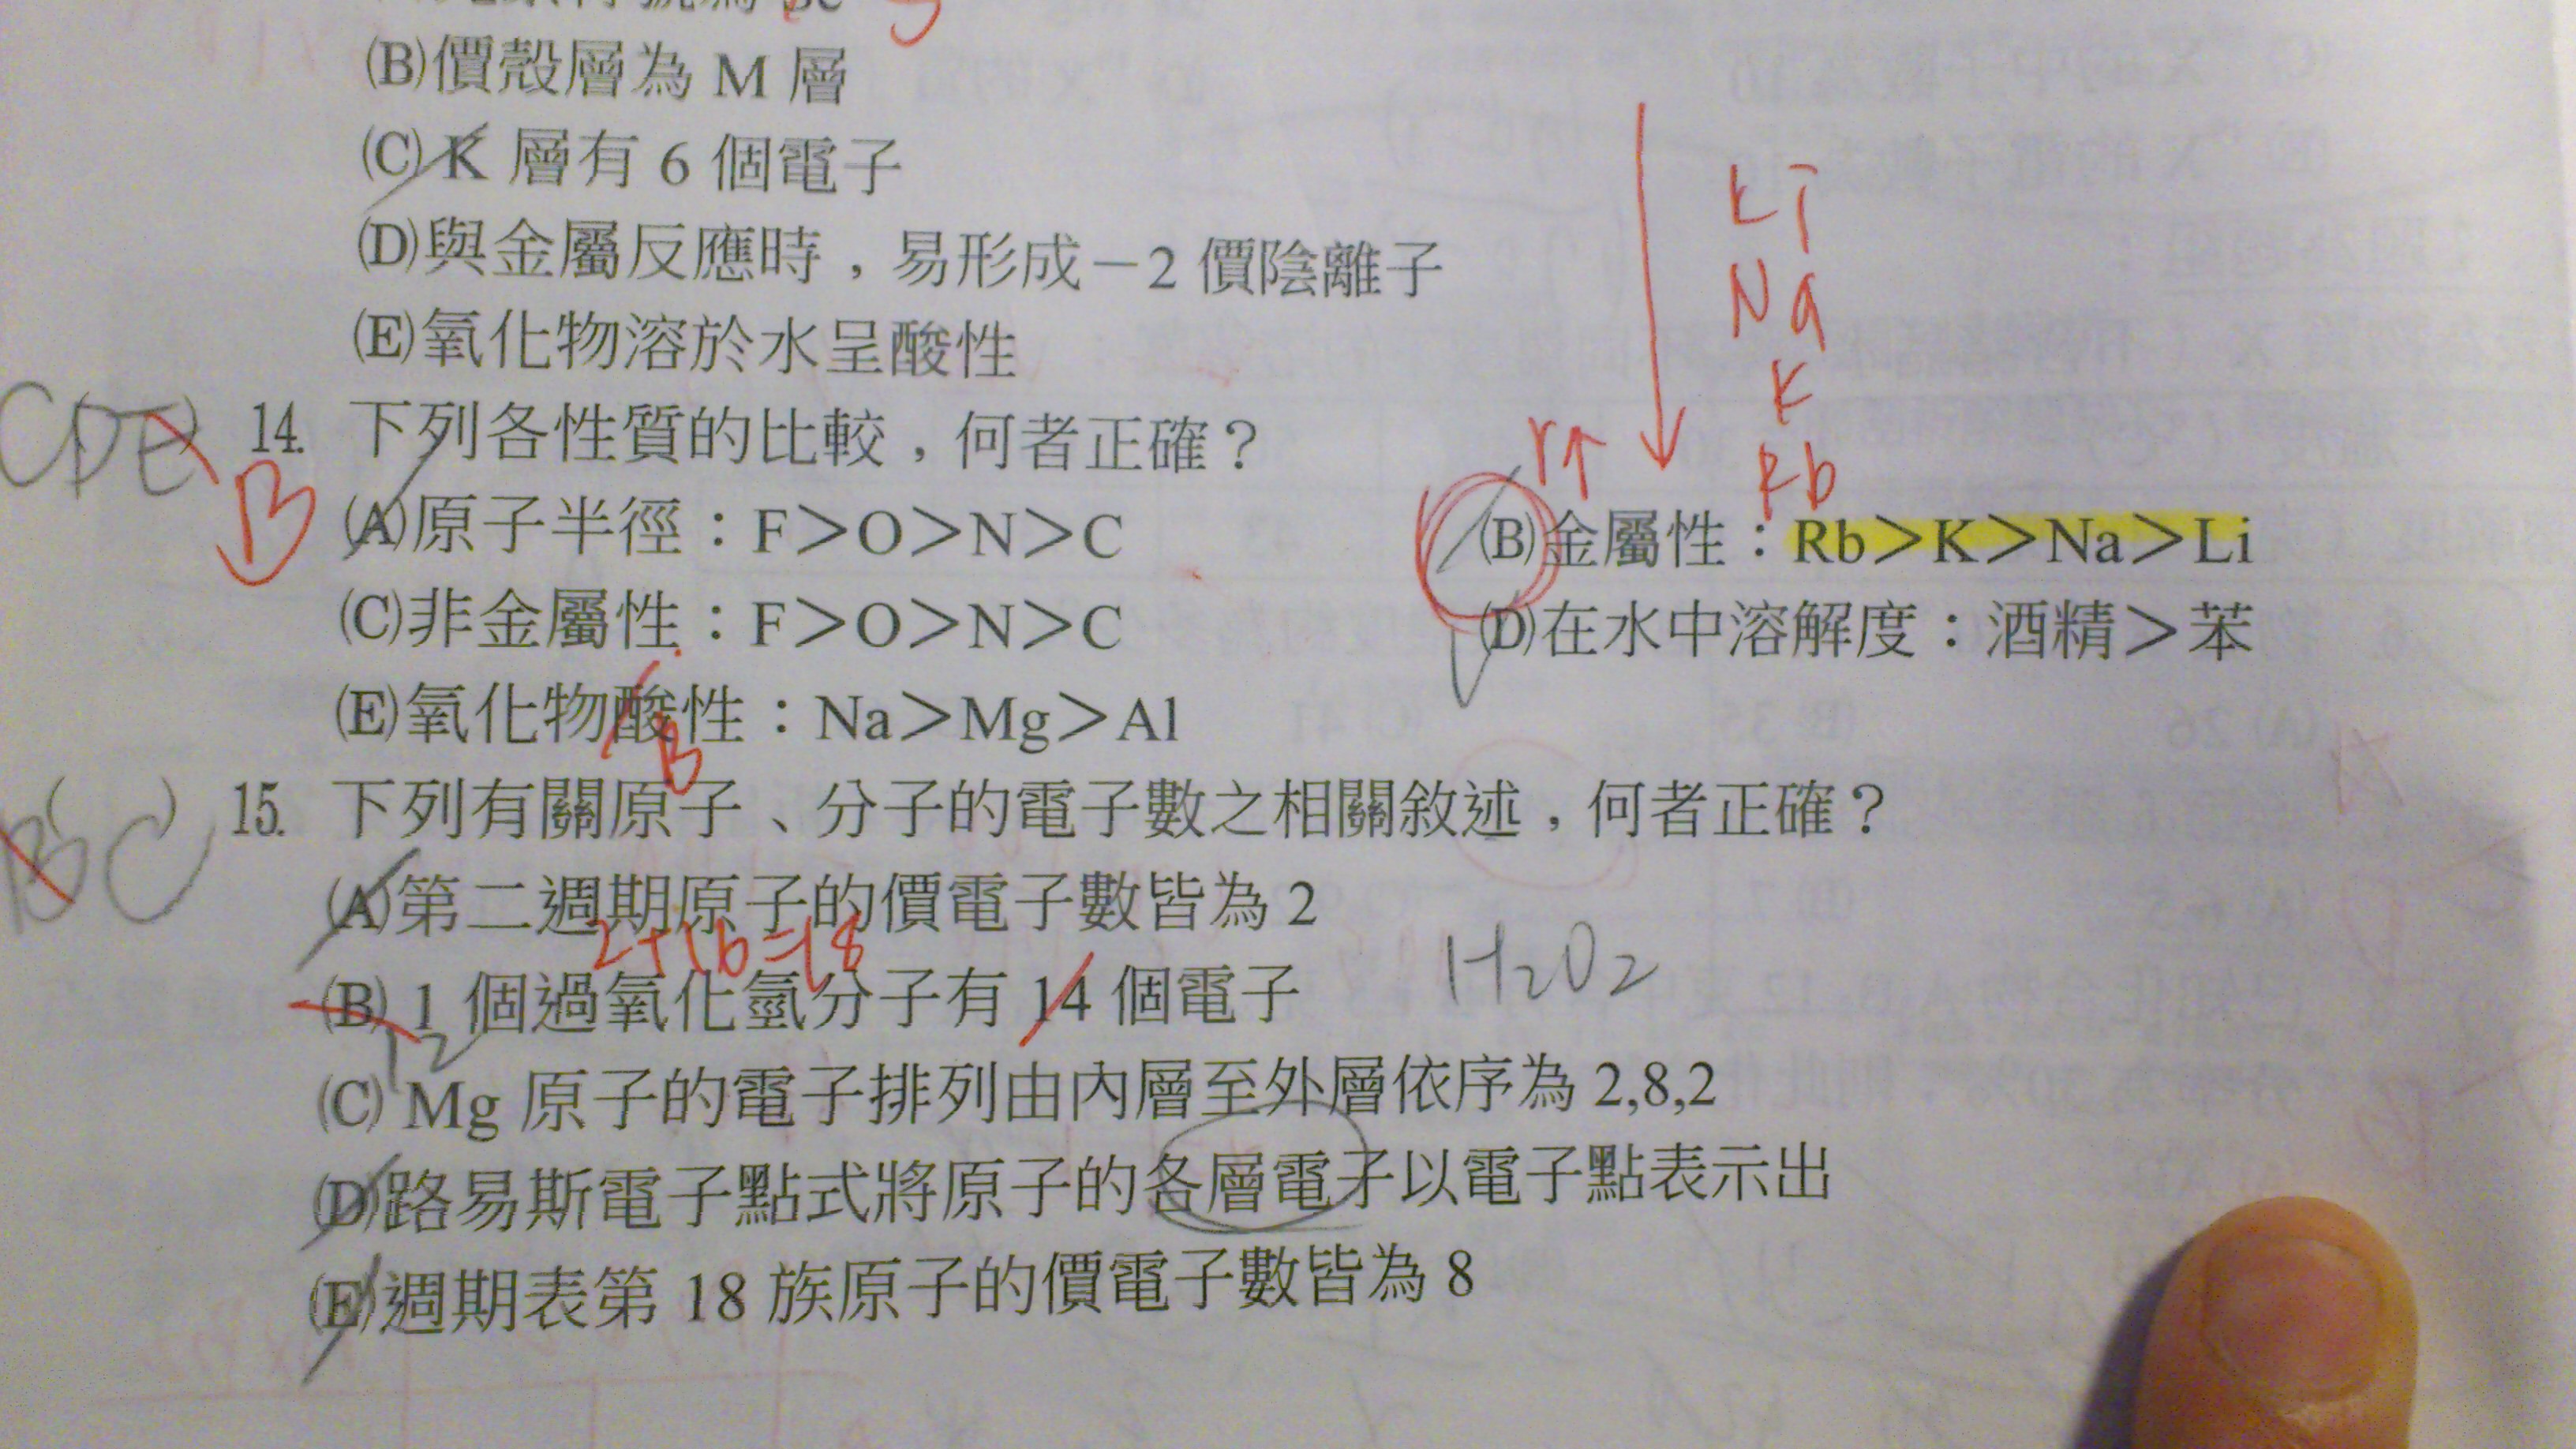 (B)價殼層為 M 層
(C) K 層有 6 個電子
(D)與金屬反應時，易形成－2 價陰離子
(E)氧化物溶於水呈酸性
Li
Na
K
Rb
r↑
CDE
B
14. 下列各性質的比較，何者正確？
(A)原子半徑：F＞O＞N＞C (B)金屬性：Rb＞K＞Na＞Li
(C)非金屬性：F＞O＞N＞C (D)在水中溶解度：酒精＞苯
(E)氧化物酸性：Na＞Mg＞Al
B
BC
15. 下列有關原子、分子的電子數之相關敘述，何者正確？
(A)第二週期原子的價電子數皆為 2
2+16=18
(B) 1 個過氧化氫分子有 14 個電子 H2O2
12
(C) Mg 原子的電子排列由內層至外層依序為 2,8,2
(D)路易斯電子點式將原子的各層電子以電子點表示出
(E)週期表第 18 族原子的價電子數皆為 8